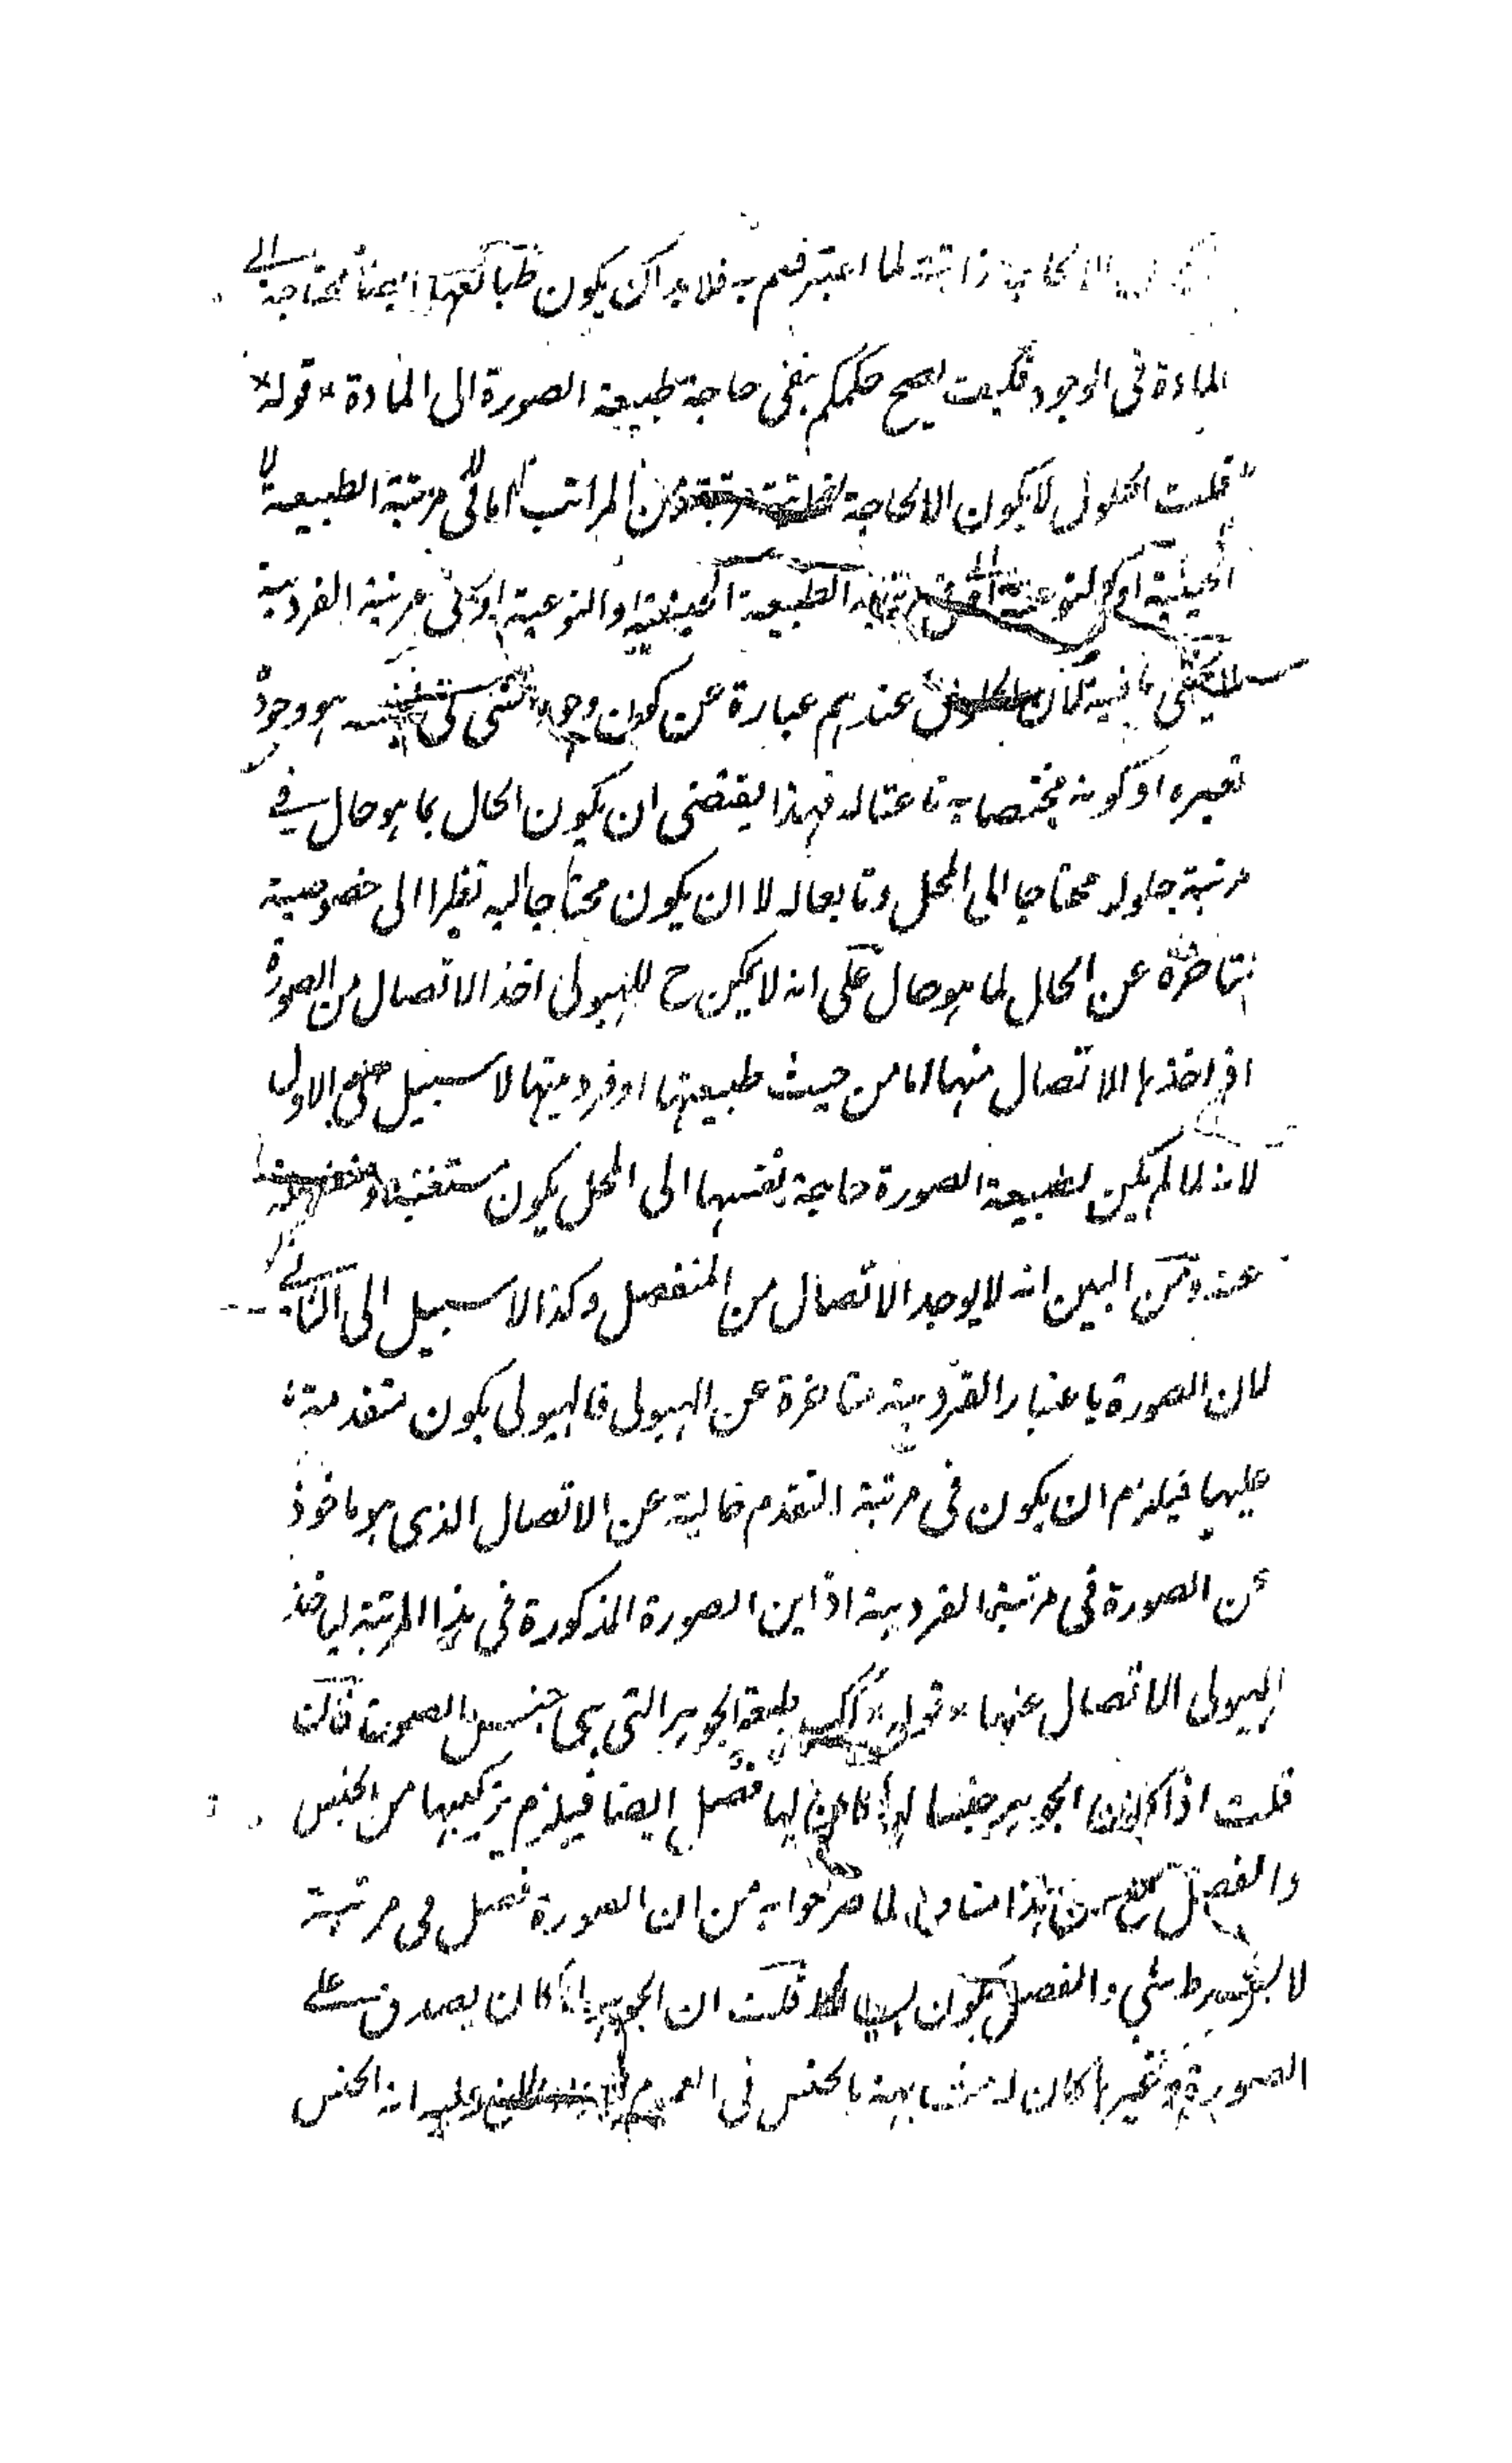 لما اعترفتم به فلا بد ان يكون طبائعها ايضا محتاجة الى
المادة فى الوجود فكيف يصح حكمكم بنفى حاجة طبيعة الصورة الى المادة قوله
قلت الحلول لا يكون الا لحاجة من المراتب اما فى مرتبة الطبيعة
الطبيعة الجنسية او النوعية او فى مرتبة الفردية
عندهم عبارة عن كون وجود شئ فى نفسه هو وجوده
لغيره او كونه مختصا به ناعتا له فهذا يقتضى ان يكون الحال بما هو حال فى
مرتبة حلوله محتاجا الى المحل وتابعا له لا ان يكون محتاجا اليه نظرا الى خصوصية
متاخرة عن الحال لما هو حال على انه لا يمكن ح للهيولى اخذ الاتصال من الصورة
اذ اخذها الاتصال منها اما من حيث طبيعتها او فرديتها لا سبيل الى الاول
لانه لما لم يكن لطبيعة الصورة حاجة بنفسها الى المحل يكون مستغنية
عنه ومن البين انه لا يوجد الاتصال من المنفصل وكذا لا سبيل الى الثانى
لان الصورة باعتبار الفردية متاخرة عن الهيولى فالهيولى يكون متقدمة
عليها فيلزم ان يكون فى مرتبة التقدم خالية عن الاتصال الذى هو ماخوذ
عن الصورة فى مرتبة الفردية اذ اين الصورة المذكورة فى هذا المرتبة لياخذ
الهيولى الاتصال عنها قوله طبيعة الجوهر التى هى جنس الصورة فان
قلت اذا كان الجوهر جنسا لها كان لها فصل ايضا فيلزم تركيبها من الجنس
والفصل هذا مناف لما صرحوا به من ان الصورة فصل فى مرتبة
لا بشرط شئ والفصل يكون بسيطا قلت ان الجوهر لما كان يصدق على
الصورة وغيرها كان له مشابهة بالجنس فى العموم عليه انه الجنس